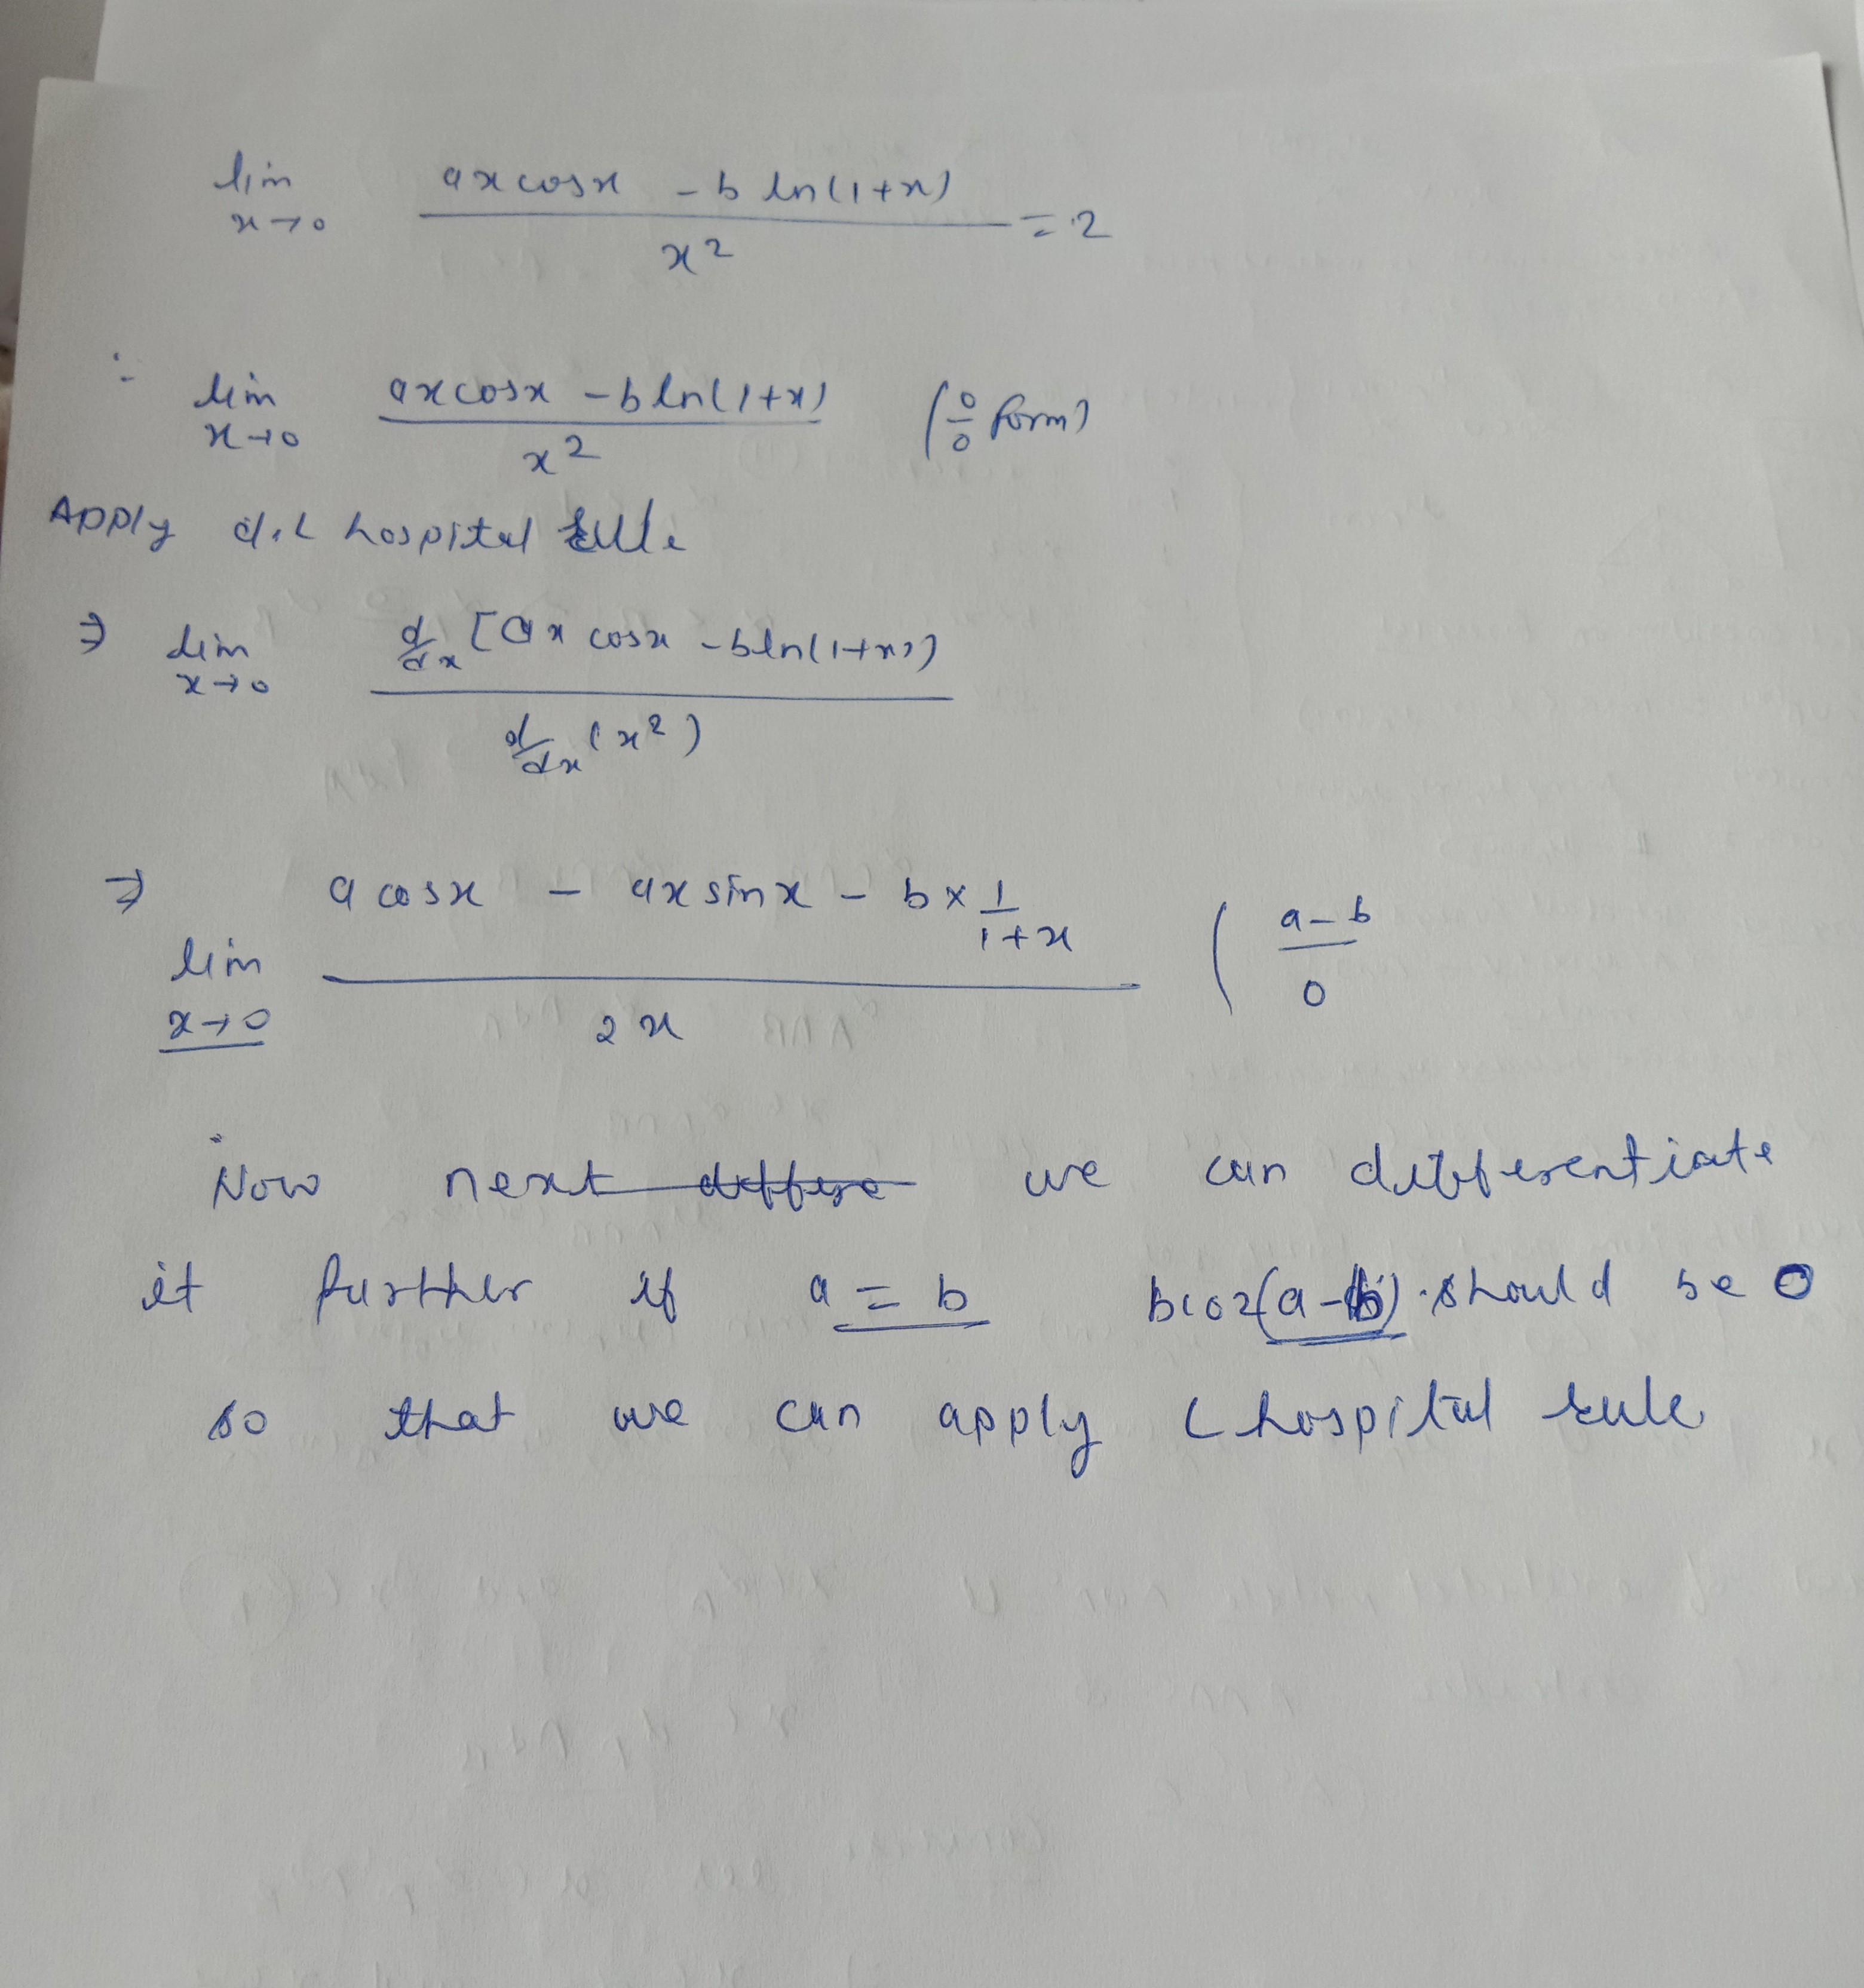 lim x→0 (ax cosx - b ln(1+x))/x² = 2
∴ lim x→0 (ax cosx - b ln(1+x))/x² (0/0 form)
Apply d.L hospital rule
⇒ lim x→0 d/dx [ax cosx - b ln(1+x)) / d/dx (x²)
⇒ lim x→0 (a cosx - ax sinx - b × 1/(1+x))/2x ( (a-b)/0
Now next we can differentiate
it further if a = b bcoz (a-b) should be 0
so that we can apply L hospital rule